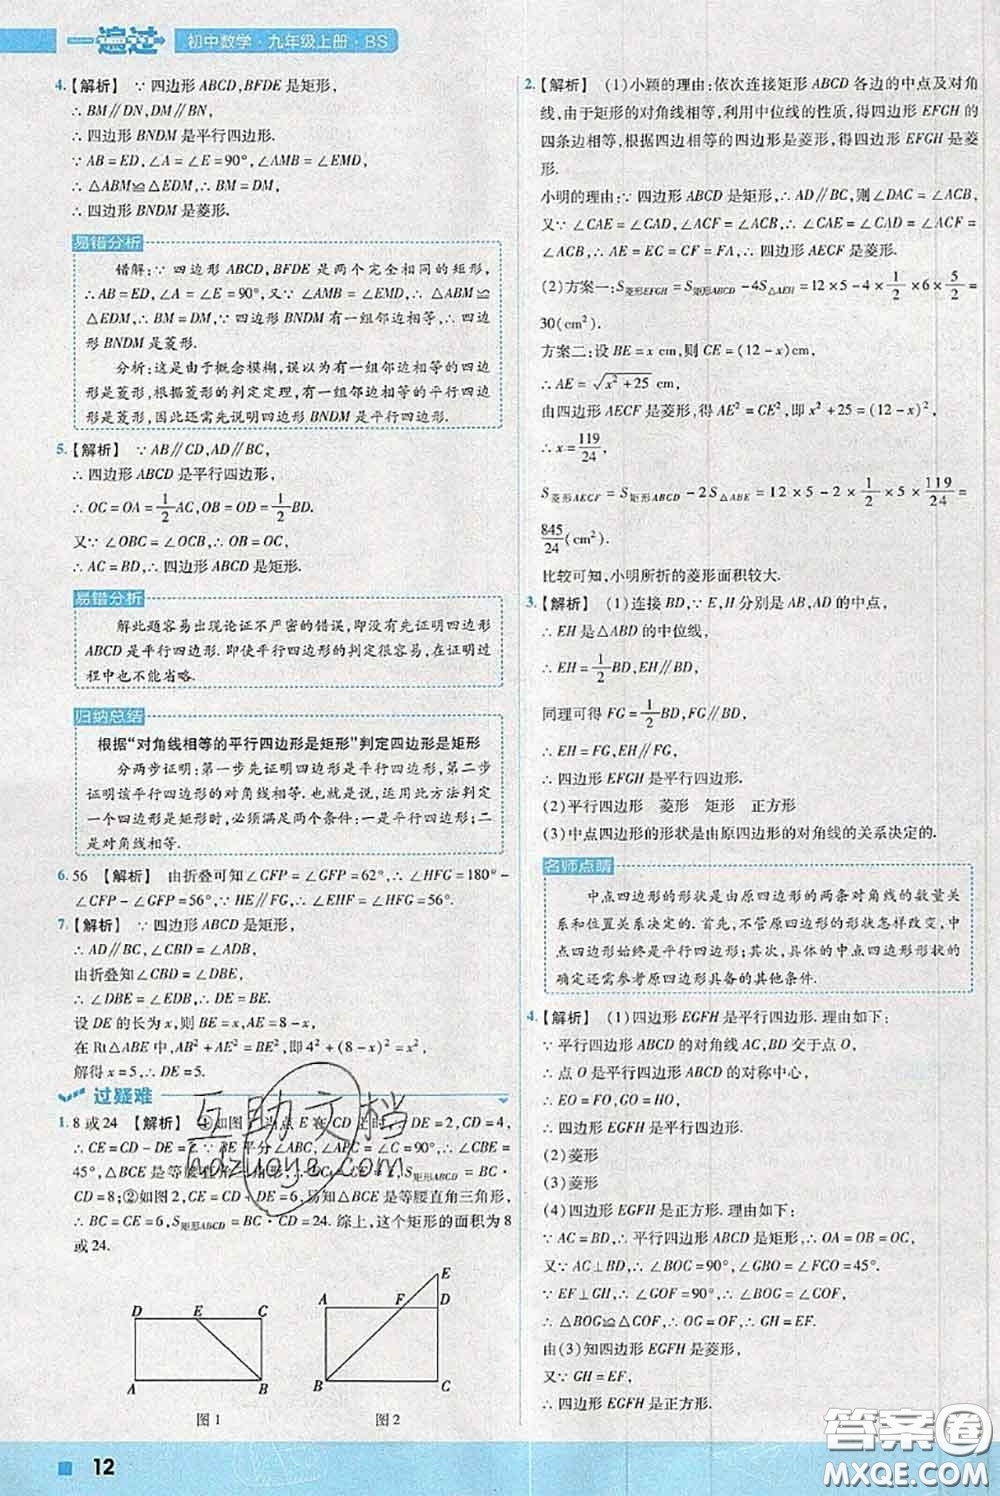 一遍过 初中数学·九年级上册·BS
4.【解析】 ∵四边形ABCD,BFDE是矩形,
∴BM∥DN,DM∥BN,
∴四边形BNDM是平行四边形.
∵AB=ED,∠A=∠E=90°,∠AMB=∠EMD,
∴△ABM≌△EDM,∴BM=DM,
∴四边形BNDM是菱形.
易错分析
错解:∵四边形ABCD,BFDE是两个完全相同的矩形,
∴AB=ED,∠A=∠E=90°,又∵∠AMB=∠EMD,∴△ABM≌
△EDM,∴BM=DM,∵四边形BNDM有一组邻边相等,∴四边
形BNDM是菱形.
分析:这是由于概念模糊,误以为有一组邻边相等的四边
形是菱形,根据菱形的判定定理,有一组邻边相等的平行四边
形是菱形,因此还需先说明四边形BNDM是平行四边形.
5.【解析】 ∵AB∥CD,AD∥BC,
∴四边形ABCD是平行四边形,
∴OC=OA=1/2AC,OB=OD=1/2BD.
又∵∠OBC=∠OCB,∴OB=OC,
∴AC=BD,∴四边形ABCD是矩形.
易错分析
解此题容易出现论证不严密的错误,即没有先证明四边形
ABCD是平行四边形.即使平行四边形的判定很容易,在证明过
程中也不能省略.
归纳总结
根据“对角线相等的平行四边形是矩形”判定四边形是矩形
分两步证明:第一步先证明四边形是平行四边形,第二步
证明该平行四边形的对角线相等.也就是说,运用此方法判定
一个四边形是矩形时,必须满足两个条件:一是平行四边形;二
是对角线相等.
6.56 【解析】 由折叠可知∠CFP=∠GFP=62°,∴∠HFG=180°-
∠CFP-∠GFP=56°,∵HE∥FG,∴∠EHF=∠HFG=56°.
7.【解析】 ∵四边形ABCD是矩形,
∴AD∥BC,∠CBD=∠ADB,
由折叠知∠CBD=∠DBE,
∴∠DBE=∠EDB,∴DE=BE.
设DE的长为x,则BE=x,AE=8-x,
在Rt△ABE中,AB²+AE²=BE²,即4²+(8-x)²=x²,
解得x=5,∴DE=5.
过疑难
1.8或24 【解析】 ①如图1,当点E在CD上时,∵DE=2,CD=4,
∴CE=CD-DE=2.∵BE平分∠ABC,∠ABC=∠C=90°,∴∠CBE=
45°,∴△BCE是等腰直角三角形,∴BC=CE=2,S矩形ABCD=BC·
CD=8;②如图2,CE=CD+DE=6,易知△BCE是等腰直角三角形,
∴BC=CE=6,S矩形ABCD=BC·CD=24.综上,这个矩形的面积为8
或24.
D E C
A B
图1
E
A F D
B C
图2
2.【解析】 (1)小颖的理由:依次连接矩形ABCD各边的中点及对角
线,由于矩形的对角线相等,利用中位线的性质,得四边形EFGH的
四条边相等,根据四边相等的四边形是菱形,得四边形EFGH是菱
形.
小明的理由:∵四边形ABCD是矩形,∴AD∥BC,则∠DAC=∠ACB,
又∵∠CAE=∠CAD,∠ACF=∠ACB,∴∠CAE=∠CAD=∠ACF=
∠ACB,∴AE=EC=CF=FA,∴四边形AECF是菱形.
(2)方案一:S菱形EFGH=S矩形ABCD-4S△AEH=12×5-4×1/2×6×5/2=
30(cm²).
方案二:设BE=x cm,则CE=(12-x)cm,
∴AE=√(x²+25) cm,
由四边形AECF是菱形,得AE²=CE²,即x²+25=(12-x)²,
∴x=119/24,
S菱形AECF=S矩形ABCD-2S△ABE=12×5-2×1/2×5×119/24=
845/24(cm²).
比较可知,小明所折的菱形面积较大.
3.【解析】 (1)连接BD,∵E,H分别是AB,AD的中点,
∴EH是△ABD的中位线,
∴EH=1/2BD,EH∥BD,
同理可得FG=1/2BD,FG∥BD,
∴EH=FG,EH∥FG,
∴四边形EFGH是平行四边形.
(2)平行四边形 菱形 矩形 正方形
(3)中点四边形的形状是由原四边形的对角线的关系决定的.
名师点睛
中点四边形的形状是由原四边形的两条对角线的数量关
系和位置关系决定的.首先,不管原四边形的形状怎样改变,中
点四边形始终是平行四边形;其次,具体的中点四边形的形状的
确定还需参考原四边形具备的其他条件.
4.【解析】 (1)四边形EGFH是平行四边形.理由如下:
∵平行四边形ABCD的对角线AC,BD交于点O,
∴点O是平行四边形ABCD的对称中心,
∴EO=FO,GO=HO,
∴四边形EGFH是平行四边形.
(2)菱形
(3)菱形
(4)四边形EGFH是正方形.理由如下:
∵AC=BD,∴平行四边形ABCD是矩形,∴OA=OB=OC,
又∵AC⊥BD,∴∠BOC=90°,∠GBO=∠FCO=45°.
∵EF⊥GH,∴∠GOF=90°,∴∠BOG=∠COF,
∴△BOG≌△COF,∴OG=OF,∴GH=EF.
由(3)知四边形EGFH是菱形,
又∵GH=EF,
∴四边形EGFH是正方形.
互助文档
hdzuoye.com
12
答案圈
MXQE.COM